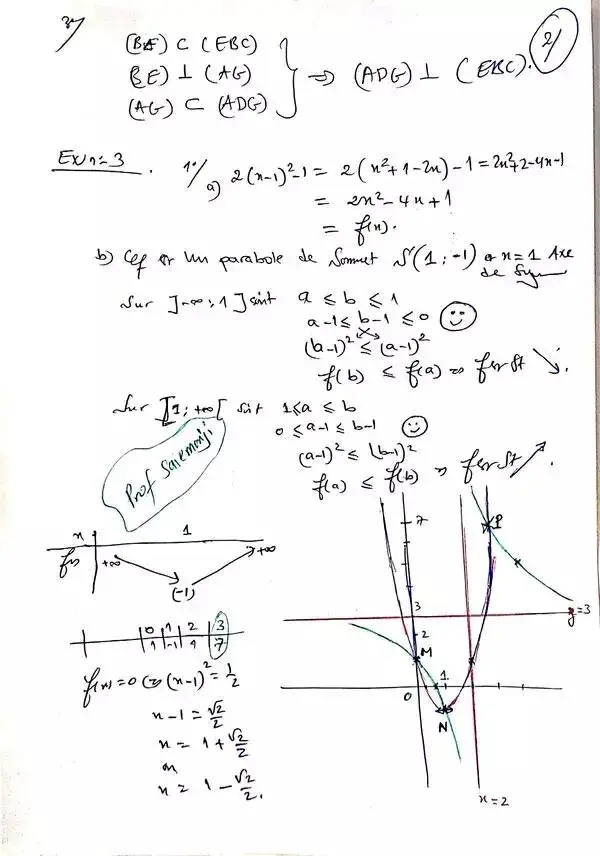 2/
3/
(BE) ⊂ (EBC)
BE) ⊥ (AG)
(AG) ⊂ (ADG)
⇒ (ADG) ⊥ (EBC).
Ex n=3
1°/ a) 2(x-1)²-1 = 2(x²+1-2x)-1 = 2x²+2-4x-1
= 2x²-4x+1
= f(x).
b) Cf est un parabole de Sommet S(1;-1) et x=1 Axe
de Sym
Sur ]-∞;1] soit a ≤ b ≤ 1
a-1 ≤ b-1 ≤ 0
(b-1)² ≤ (a-1)²
f(b) ≤ f(a) ⇒ f est St ↘.
Sur [1;+∞[ soit 1 ≤ a ≤ b
0 ≤ a-1 ≤ b-1
(a-1)² ≤ (b-1)²
f(a) ≤ f(b) ⇒ f est St ↗.
Prof Salemmji
x 1
f(x) +∞ (-1) +∞
0 1 2 3
1 -1 1 7
f(x)=0 ⇔ (x-1)² = 1/2
x-1 = √2/2
x = 1+√2/2
ou
x = 1-√2/2.
7
P
3
y=3
2
M
0
1
N
x=2